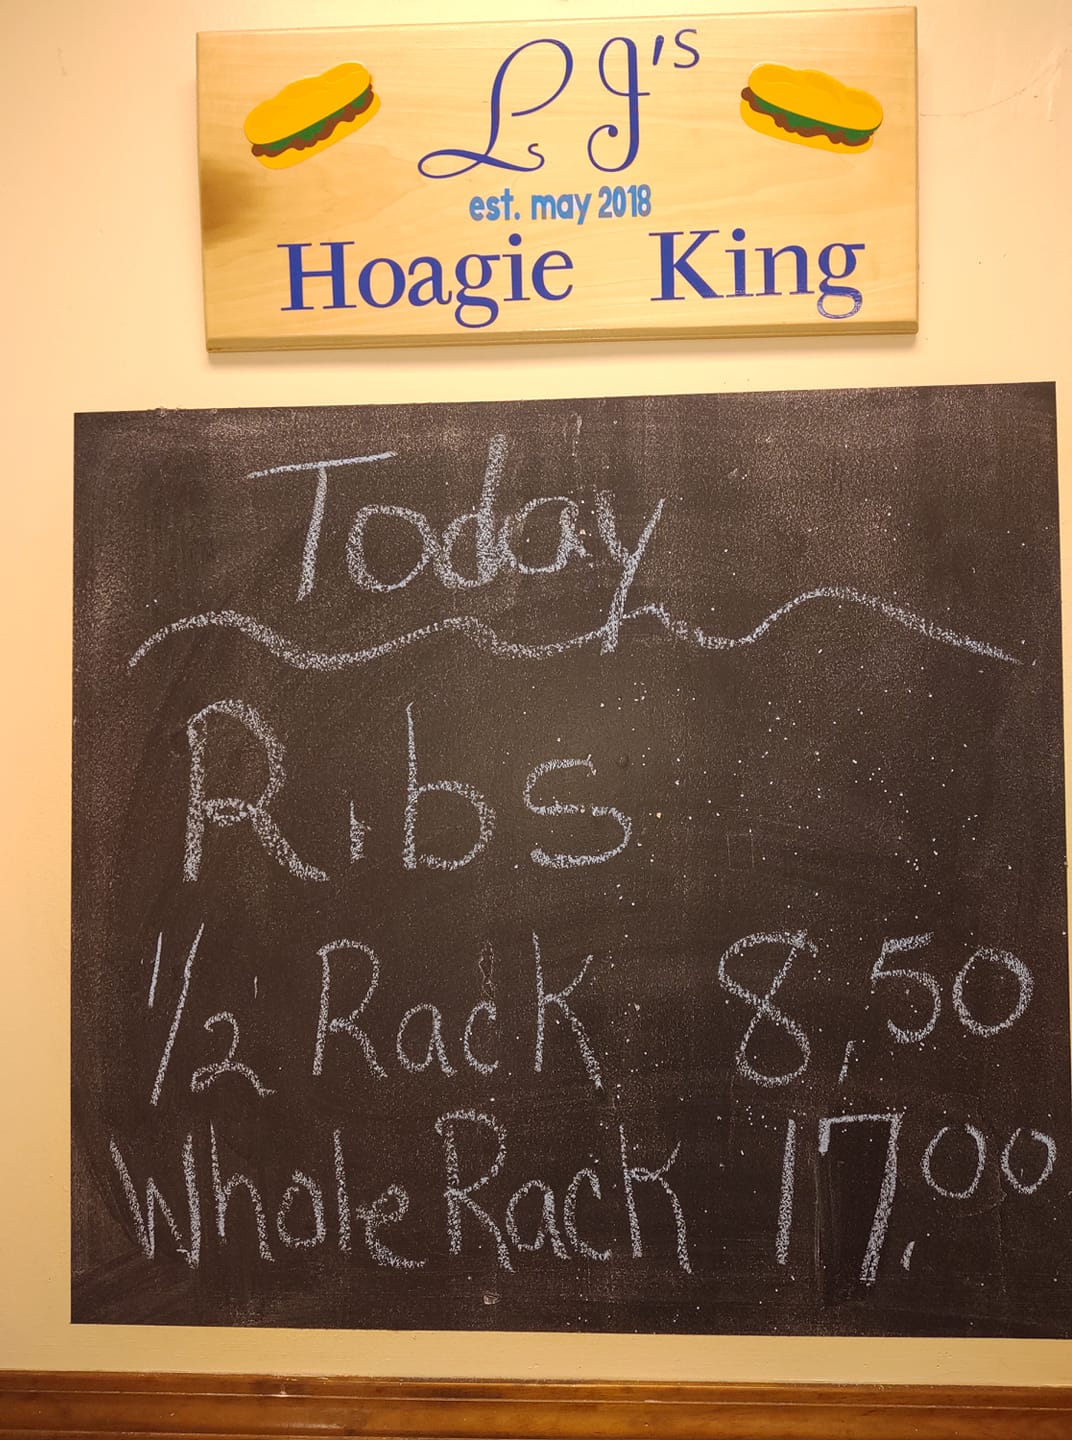 Ls J's
est. may 2018
Hoagie King
Today
Ribs
1/2 Rack 8.50
Whole Rack 17.00